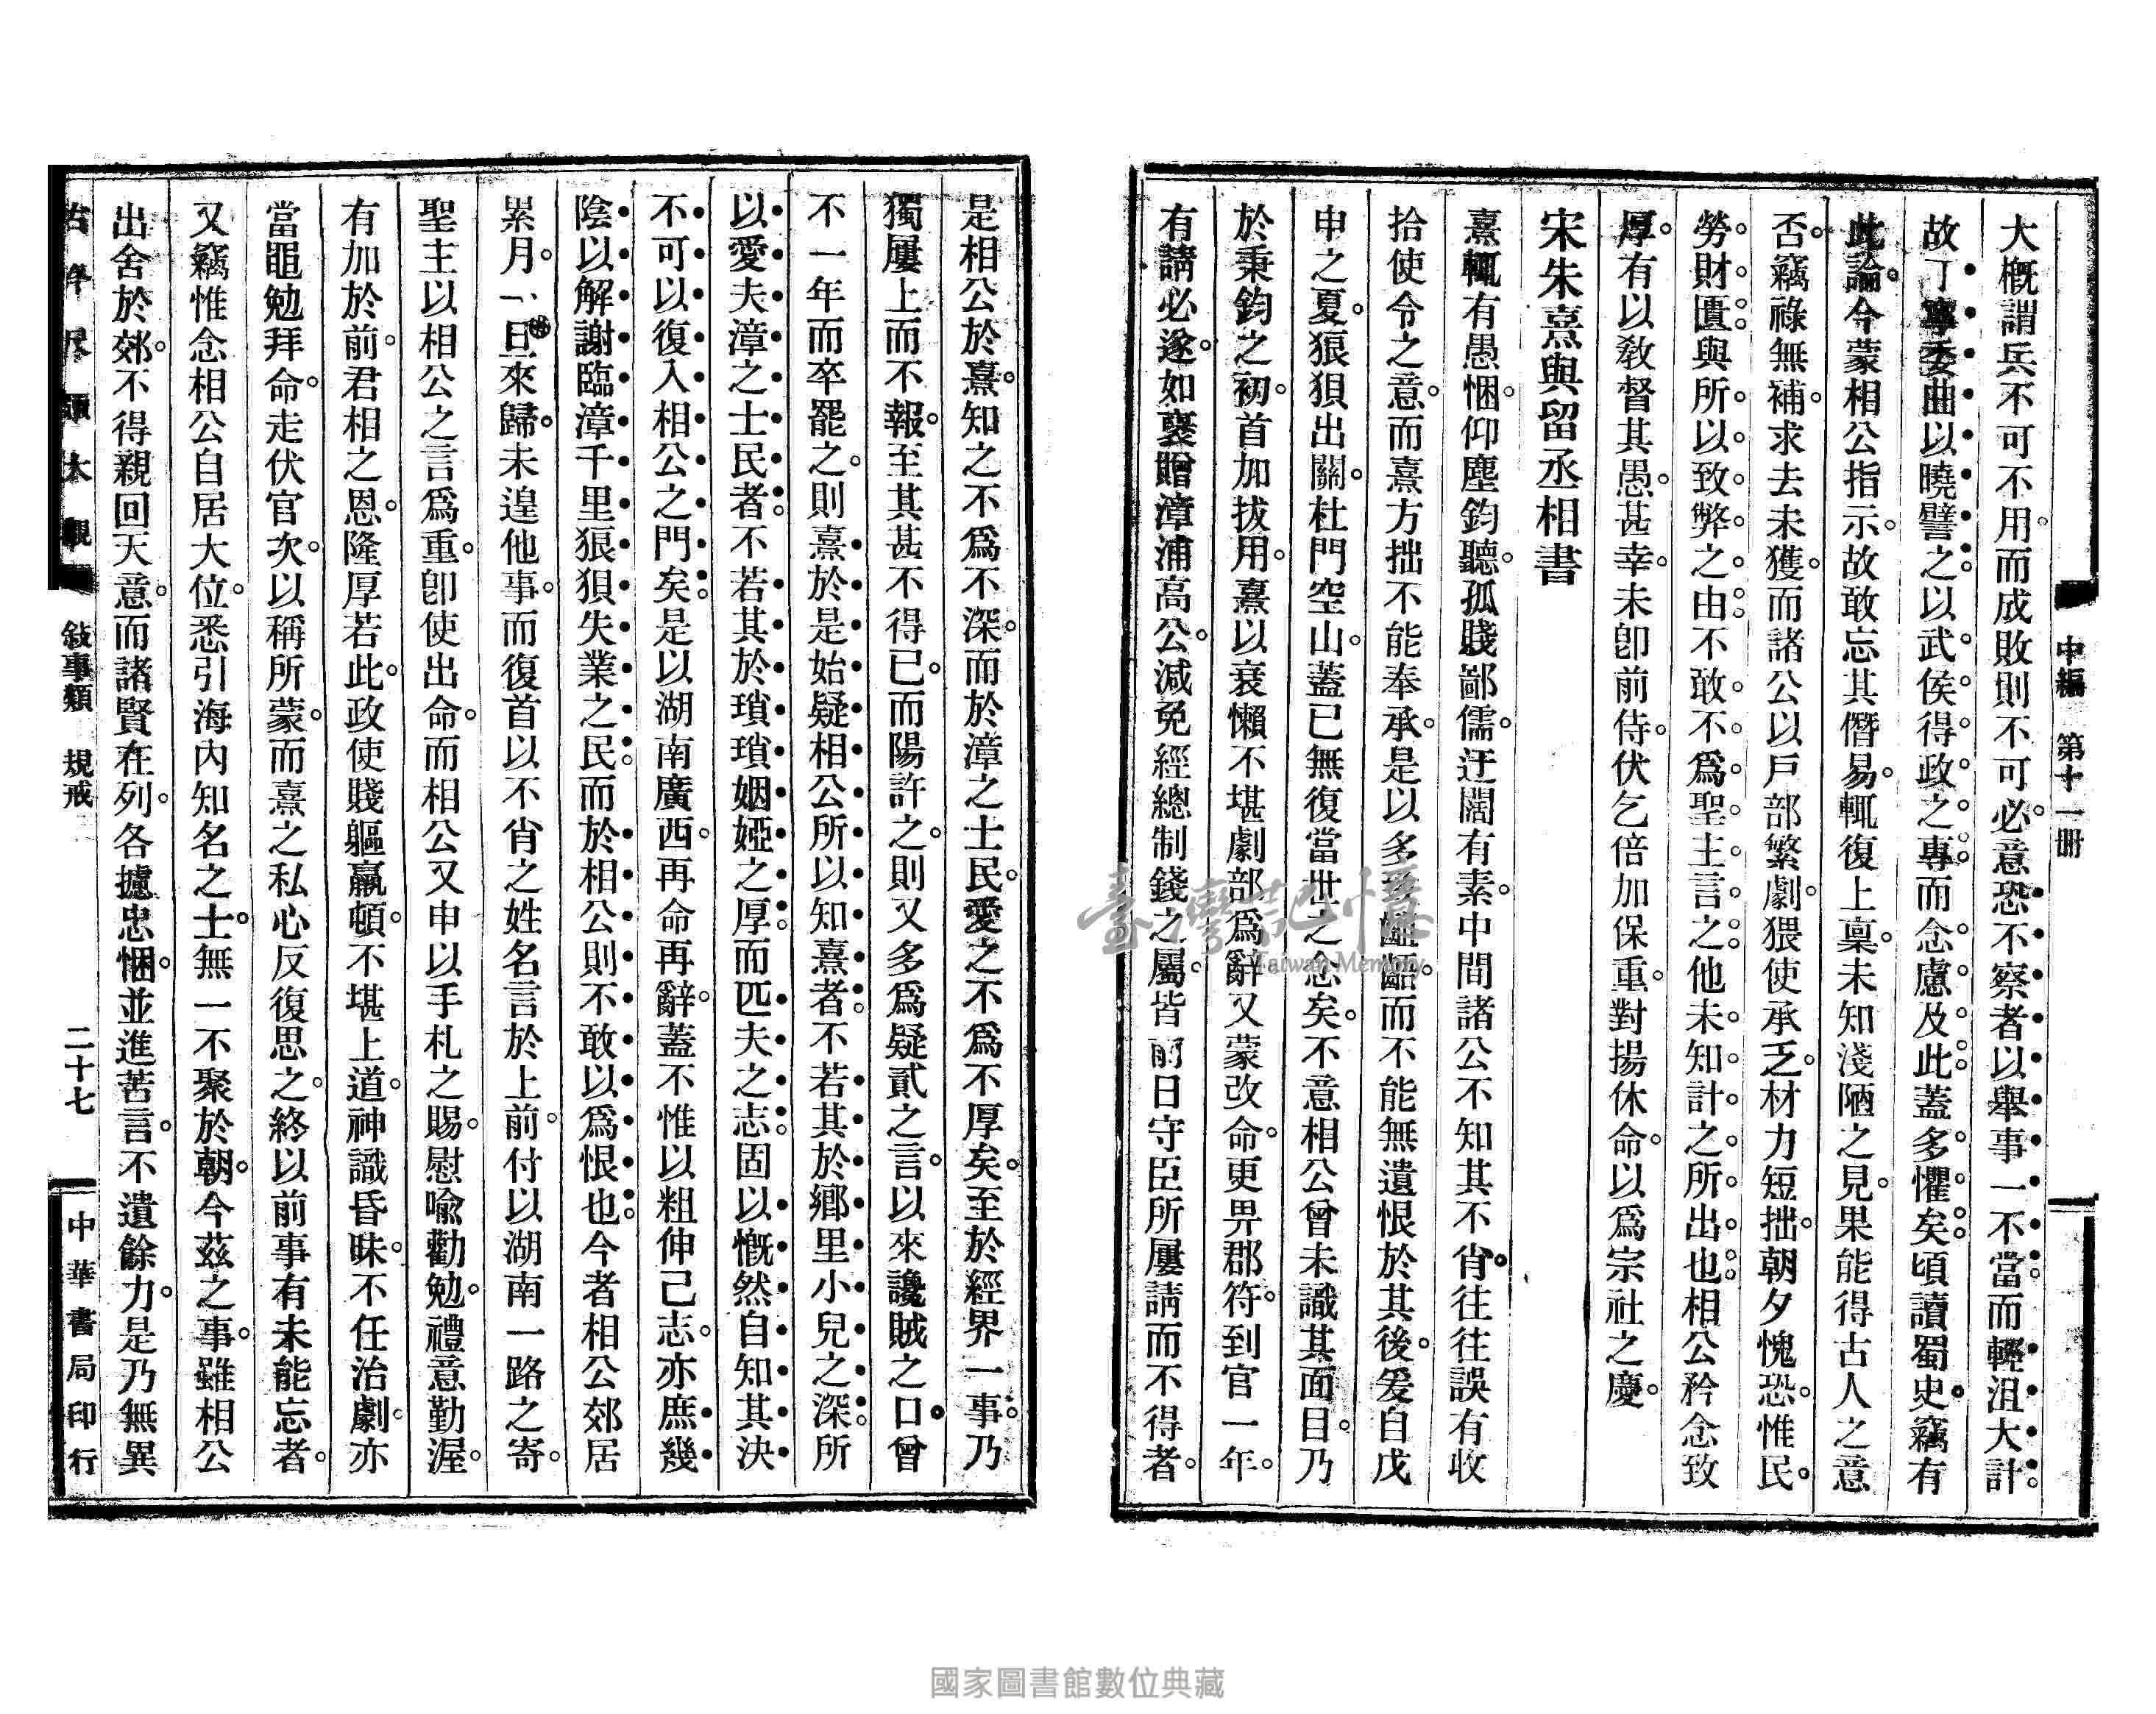 中編　第十一冊
大概謂兵不可不用。而成敗則不可必。意恐不察者以舉事一不當。而輕沮大計。
故丁寧委曲以曉譬之。以武侯得政之專。而念慮及此。蓋多懼矣。頃讀蜀史。竊有
此論。今蒙相公指示。故敢忘其僭易。輒復上稟。未知淺陋之見。果能得古人之意
否。竊祿無補。求去未獲。而諸公以戶部繁劇。猥使承乏。材力短拙。朝夕愧恐。惟民
勞財匱。與所以致弊之由。不敢不爲聖主言之。他未知計之所出也。相公矜念致
厚。有以敎督其愚。甚幸。未卽前侍。伏乞倍加保重。對揚休命。以爲宗社之慶。
宋朱熹與留丞相書
熹輒有愚悃。仰塵鈞聽。孤賤鄙儒。迂闊有素。中間諸公不知其不肖。往往誤有收
拾使令之意。而熹方拙不能奉承。是以多致齟齬。而不能無遺恨於其後。爰自戊
申之夏。狼狽出關。杜門空山。蓋已無復當世之念矣。不意相公曾未識其面目。乃
於秉鈞之初。首加拔用。熹以衰懶不堪劇部爲辭。又蒙改命。更畀郡符。到官一年。
有請必遂。如襃贈漳浦高公。減免經總制錢之屬。皆前日守臣所屢請而不得者。
是相公於熹。知之不爲不深。而於漳之士民。愛之不爲不厚矣。至於經界一事。乃
獨屢上而不報。至其甚不得已。而陽許之。則又多爲疑貳之言。以來讒賊之口。曾
不一年而卒罷之。則熹於是始疑相公所以知熹者。不若其於鄉里小兒之深。所
以愛夫漳之士民者。不若其於瑣瑣姻婭之厚。而匹夫之志。固以慨然自知其決
不可以復入相公之門矣。是以湖南廣西。再命再辭。蓋不惟以粗伸己志。亦庶幾
陰以解謝臨漳千里狼狽失業之民。而於相公則不敢以爲恨也。今者相公郊居
累月。一旦來歸。未遑他事。而復首以不肖之姓名言於上前。付以湖南一路之寄。
聖主以相公之言爲重。卽使出命。而相公又申以手札之賜。慰喩勸勉。禮意勤渥。
有加於前。君相之恩。隆厚若此。政使賤軀羸頓。不堪上道。神識昏昧。不任治劇。亦
當黽勉拜命。走伏官次。以稱所蒙。而熹之私心反復思之。終以前事有未能忘者。
又竊惟念相公自居大位。悉引海內知名之士。無一不聚於朝。今茲之事。雖相公
出舍於郊。不得親回天意。而諸賢在列。各攄忠悃。並進苦言。不遺餘力。是乃無異
尺牘大觀　敍事類　規戒　二十七　中華書局印行
臺灣記憶
Taiwan Memory
國家圖書館數位典藏